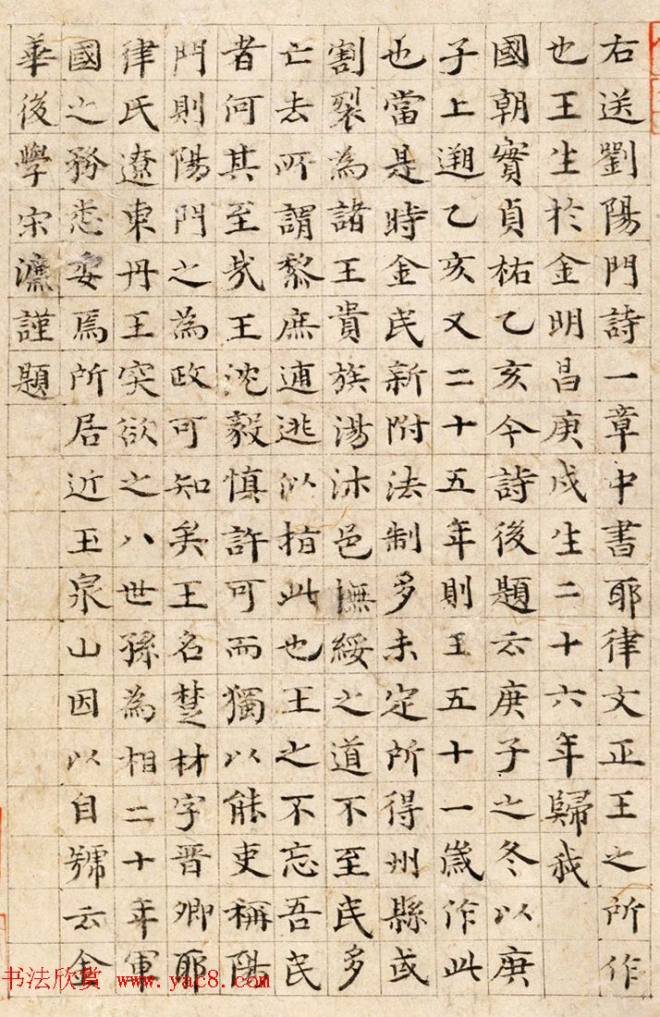 右送劉陽門詩一章中書耶律文正王之所作
也王生於金明昌庚戌生二十六年歸我
國朝實貞祐乙亥今詩後題云庚子之冬以庚
子上遡乙亥又二十五年則王五十一歲作此
也當是時金民新附法制多未定所得州縣或
割裂為諸王貴族湯沐邑撫綏之道不至民多
亡去所謂黎庶逋逃似指此也王之不忘吾民
者何其至哉王沈毅慎許可而獨以能吏稱陽
門則陽門之為政可知矣王名楚材字晉卿耶
律氏遼東丹王突欲之八世孫為相二十年軍
國之務悉委焉所居近玉泉山因以自號云金
華後學宋濂謹題
书法欣赏 www.yac8.com